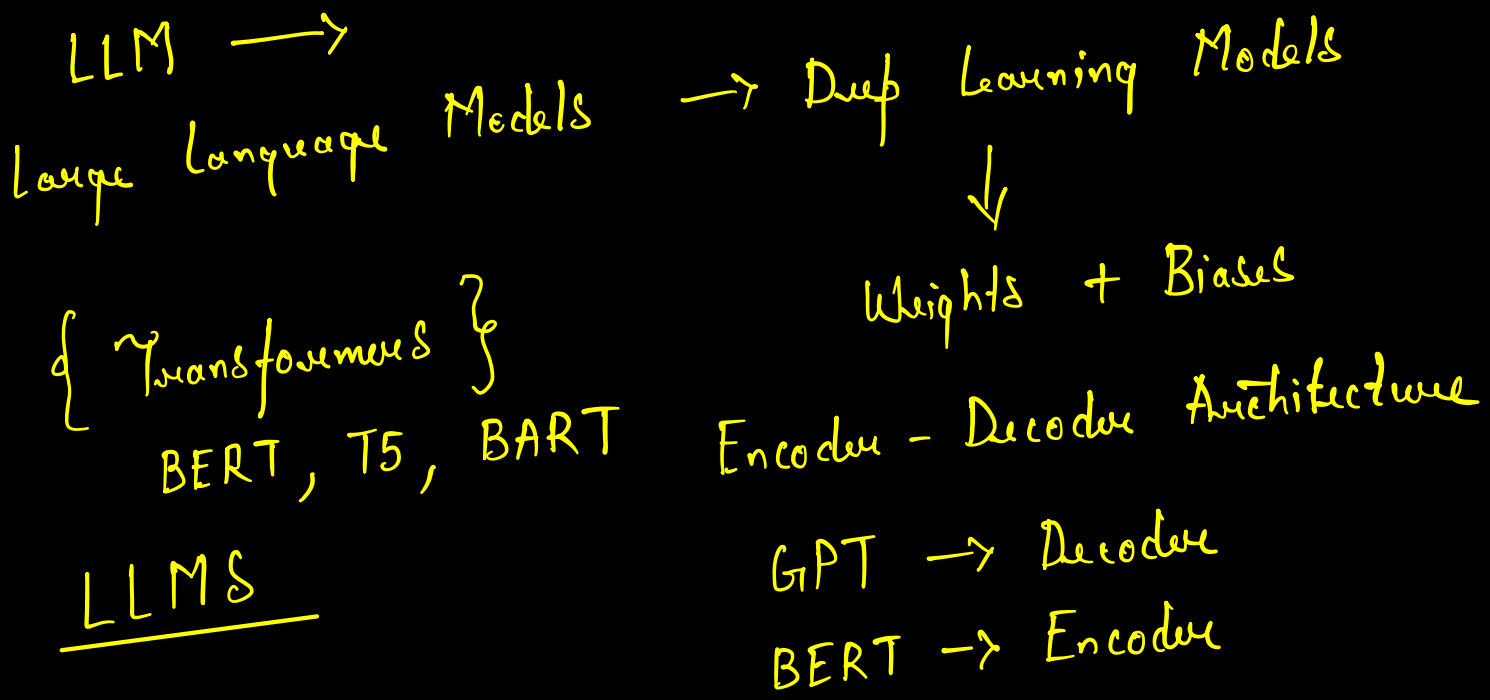 LLM →
Large Language Models → Deep Learning Models
↓
Weights + Biases
{ Transformers }
BERT, T5, BART
Encoder - Decoder Architecture
LLMS
GPT → Decoder
BERT → Encoder